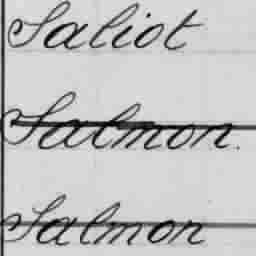 Saliot
Salmon.
Salmon